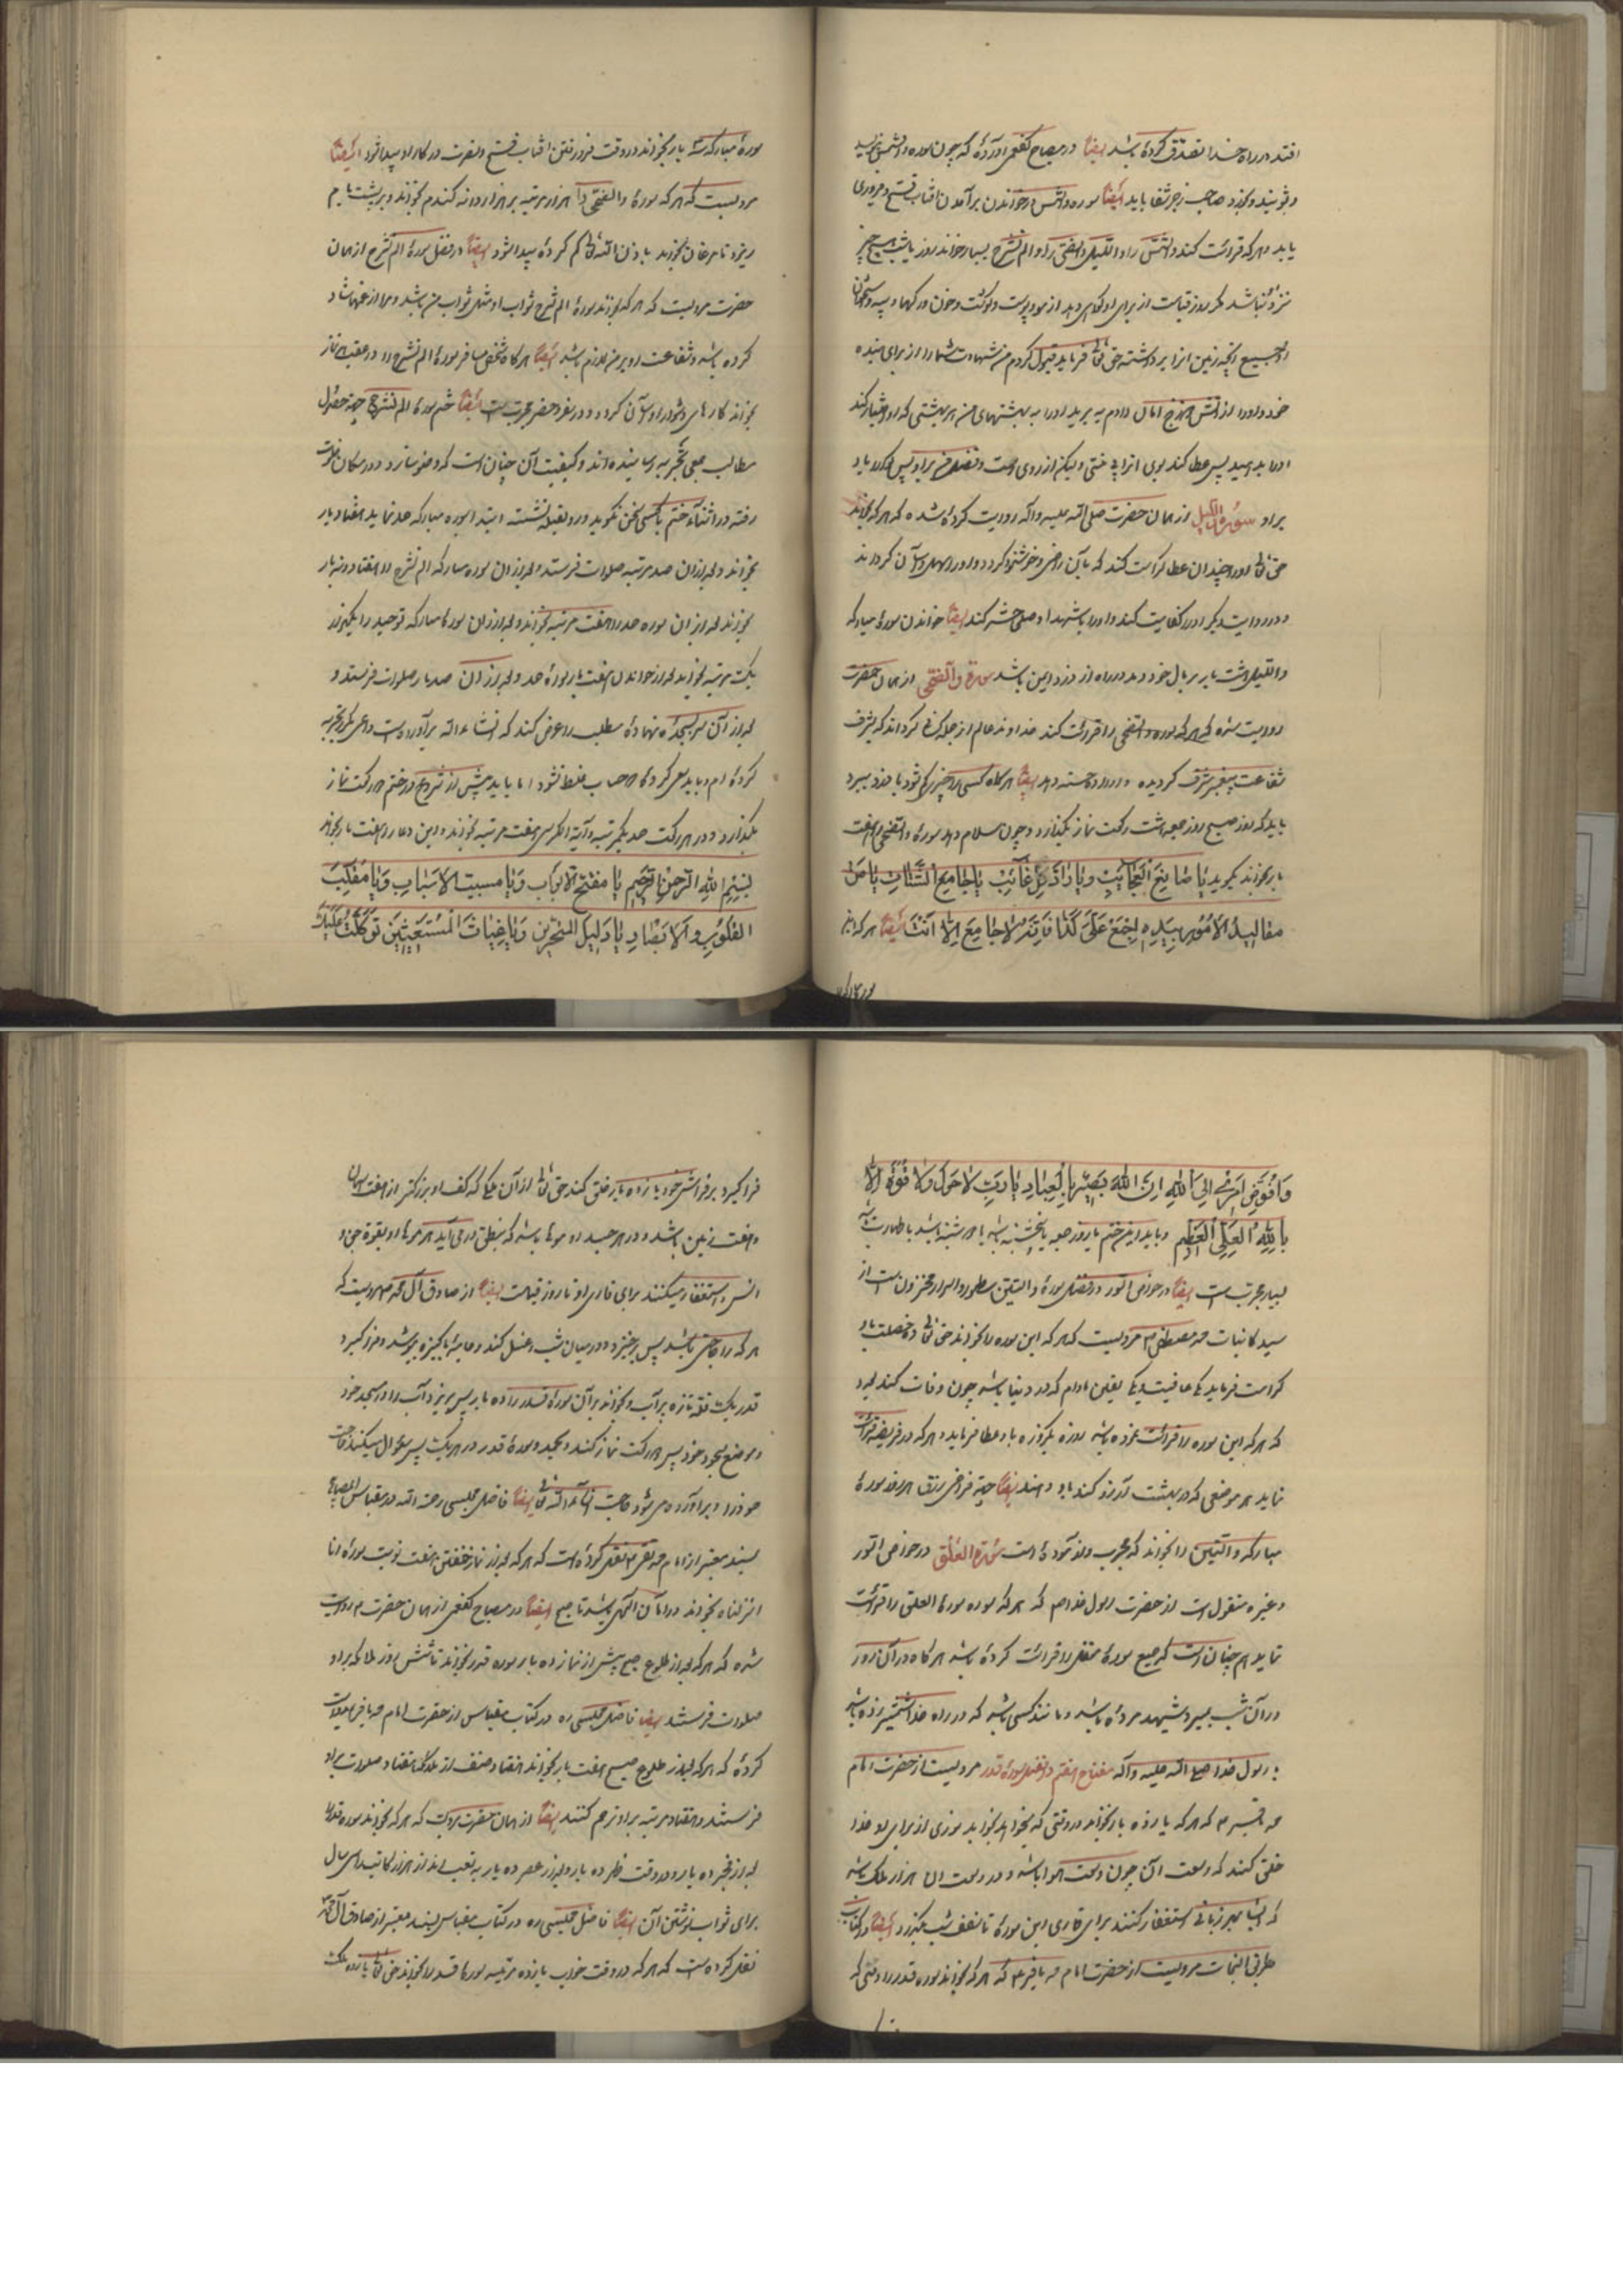 افتد در راه خدا تصدق کرده باشد ایضاً در مصباح کفعمی آورده که چون سوره والشمس بنویسد
و بشویند و بخورد صاحب زحیر شفا یابد ایضاً سوره والشمس خواندن برآمدن آفتاب فتح و فیروزی
یابد و هرکه قرائت کند والشمس را و اللیل و الضحی را و الم نشرح بسیار خواند روز یا شب هیچ چیز
نزد او نباشد مگر روز قیامت از برای او گواهی دهد از مو و پوست و گوشت و خون و رگها و پی و استخوان
و جمیع آنچه زمین آنرا برداشته حق تعالی فرماید قبول کردم من شهادت شما را از برای بنده
خود و او را از آتش دوزخ امان دادم به برید او را به بهشتهای من هر بهشتی که او اختیار کند
او را بدهید پس عطا کند بوی آنرا بی منتی ولیکن از روی رحمت و فضل من بر او پس گوارا باد
بر او سورة اللیل از همان حضرت صلی الله علیه و آله روایت کرده شده که هر که بخواند
حق تعالی او را چندان عطا کرامت کند که بآن راضی و خوشنود گردد و او را سهل و آسان گرداند
و در روایت دیگر او را کفایت کند و او را با شهدا و صلحا حشر کند ایضاً خواندن سورهٔ مبارکه
واللیل هشت بار بر مال خود دمد در راه از دزد ایمن باشد سورة والضحی از همان حضرت
روایت شده که هر که سوره والضحی را قرائت کند خداوند عالم از جمله کسانی گرداند که بشرف
شفاعت پیغمبر مشرف گردیده ایضاً هر گاه کسی را چیزی گم شود یا دزد ببرد
باید که روز صبح روز جمعه هشت رکعت نماز بگذارد و چون سلام دهد سورهٔ والضحی را هفت
بار بخواند بگوید یا صانع العجائب و یا راد کل غائب یا جامع الشتات یا من
مقالید الامور بیده اجمع علی کذا فانه لا جامع الا انت ایضاً هر که این
سوره مبارکه را
سورهٔ مبارکه بار بخواند در وقت فرو رفتن آفتاب فتح و نصرت در کار او پیدا شود ایضاً
مرویست که هر که سورهٔ والضحی را هزار مرتبه بر هزار دانه گندم بخواند و بر پشت بام
ریزد تا مرغان بخورند باذن الله تعالی گم کرده پیدا شود ایضاً در فضل سورهٔ الم نشرح از همان
حضرت مرویست که هر که بخواند سورهٔ الم نشرح ثواب او مثل ثواب من باشد و مرا از غمها شاد
کرده باشد و شفاعت او بر من لازم باشد ایضاً هر گاه شخص مسافر سورهٔ الم نشرح را در عقب نماز
بخواند کارهای دشوار او آسان گردد و در سفر و حضر مجرب است ایضاً ختم سوره الم نشرح جهة حصول
مطالب جمعی تجربه رسانیده اند و کیفیت آن چنان است که وضو سازد و در مکان خلوت
رفته در اثناء ختم با کسی سخن نگوید و رو بقبله نشسته ابتدا سوره مبارکه حمد نماید هفتاد بار
بخواند و بعد از آن صد مرتبه صلوات فرستد و بعد از آن سوره مبارکه الم نشرح را هفتاد و نه بار
بخواند بعد از آن سوره حمد را هفت مرتبه بخواند و بعد از آن سورهٔ مبارکه توحید را یکهزار
یکمرتبه بخواند بعد از خواندن هفت بار سورهٔ حمد و بعد از آن صد بار صلوات فرستد و
بعد از آن سر بسجده نهاده مطلب را عرض کند که انشاءالله برآورده است داعی مکرر تجربه
کرده ام و باید سعی کرده که حساب غلط نشود اما باید پیش از شروع در ختم دو رکعت نماز
بگذارد و در هر رکعت حمد یکمرتبه و آیة الکرسی هفت مرتبه بخواند و این دعا را هفت بار بخواند
بسم الله الرحمن الرحیم یا مفتح الابواب و یا مسبب الاسباب و یا مقلب
القلوب و الابصار یا دلیل المتحیرین و یا غیاث المستغیثین توکلت علیک
وافوض امری الی الله ان الله بصیر بالعباد یا رب لا حول و لا قوة الا
بالله العلی العظیم و باید این ختم یا روز جمعه یا پنجشنبه باشد یا دوشنبه باشد با طهارت باشد
بسیار مجرب است ایضاً در خواص السور در فضل سورهٔ والتین مسطور و اسرار مخزون است از
سید کاینات محمد مصطفی ص مرویست که هر که این سوره را بخواند حق تعالی دو خصلت باو
کرامت فرماید یکی عافیت و یکی یقین مادام که در دنیا باشد چون وفات کند بعدد
که هر که این سوره را قرائت نموده باشد روزه یکروزه باو عطا فرماید و هر که در فریضه قرائت
نماید هر موضعی که در بهشت آرزو کند باو دهند ایضاً جهة فراخی رزق هر روز سورهٔ
مبارکه والتین را بخواند که مجرب و آزموده است سورة العلق در خواص السور
و غیره منقول است از حضرت رسول خدا ص که هر که سوره سورهٔ العلق را قرائت
نماید هم چنان است که جمیع سورهٔ مفصل را قرائت کرده باشد هر گاه در آن روز
در آن شب بمیرد شهید مرده باشد و مانند کسی باشد که در راه خدا شمشیر زده باشد
با رسول خدا صلی الله علیه و آله مفتاح هفتم در فضل سورهٔ قدر مرویست از حضرت امام
محمد باقر ع که هر که یازده بار بخواند در وقتی که بخواهد بخوابد نوری از برای او خدا
خلق کند که وسعت آن چون وسعت هوا باشد و در وسعت آن هزار ملک باشد
که بهر زبانی استغفار کنند برای قاری این سوره تا نصف شب بگذرد ایضاً در کتاب
طریق النجات مرویست از حضرت امام محمد باقر ع که هر که بخواند سوره قدر را وقتی که
فراگیرد بر فراش خود یازده بار خلق کند حق تعالی از آن ملکی که کف او بزرگتر از هفت آسمان
و هفت زمین باشد و در هر جسد او موها باشد که بنطق در می آید هر موی او بقوة جن و
انس و استغفار میکنند برای قاری او تا روز قیامت ایضاً از صادق آل محمد ص مرویست که
هر که را حاجتی باشد پس برخیزد در میان شب و غسل کند و جامهٔ پاکیزه بپوشد و فرا گیرد
قدر یک قله تازه پر آب و بخواند بر آن سورهٔ قدر را ده بار پس بریزد آب را در مسجد خود
و موضع سجود خود پس دو رکعت نماز کند و بحمد و سورهٔ قدر در هر یک پس سؤال میکند حاجت
خود را و برآورده می شود حاجت انشاءالله تعالی ایضاً فاضل مجلسی رحمة الله در مقباس المصابیح
بسند معتبر از امام محمد تقی ع نقل کرده است که هر که بعد از نماز خفتن هفت نوبت سورهٔ انا
انزلناه بخواند در امان الهی باشد تا صبح ایضاً در مصباح کفعمی از همان حضرت ع روایت
شده که هر که بعد از طلوع صبح پیش از نماز ده بار سوره قدر بخواند تا شش روز ملائکه بر او
صلوات فرستند ایضاً فاضل مجلسی ره در کتاب مقباس از حضرت امام محمد باقر ع روایت
کرده که هر که بعد از طلوع صبح هفت بار بخواند هفتاد صنف از ملائکه هفتاد صلوات بر او
فرستند و هفتاد مرتبه بر او ترحم کنند ایضاً از همان حضرت مرویست که هر که بخواند سوره قدر را
بعد از فجر ده بار و در وقت ظهر ده بار و بعد از عصر ده بار به تعب اندازد هزار کاتب را سی سال
برای ثواب نوشتن آن ایضاً فاضل مجلسی ره در کتاب مقباس بسند معتبر از صادق آل محمد
نقل کرده است که هر که در وقت خواب یازده مرتبه سورهٔ قدر را بخواند حق تعالی یازده ملک